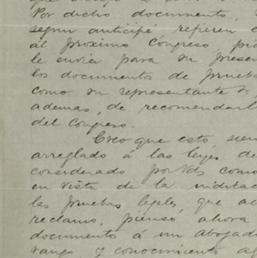 Por dicho documento,
segun anticipé, refieren
al próximo Congreso, pi
le envier para su presen
los documentos de prueba
como su representante
ademas, de recomendarl
del Congreso.
Creo que esto, sien
arreglado á las leyes de
considerado por Vds como
en vista de la
las pruebas legales que ac
reclamo, pienso ahora
documento á un abogado
rango y conocimiento